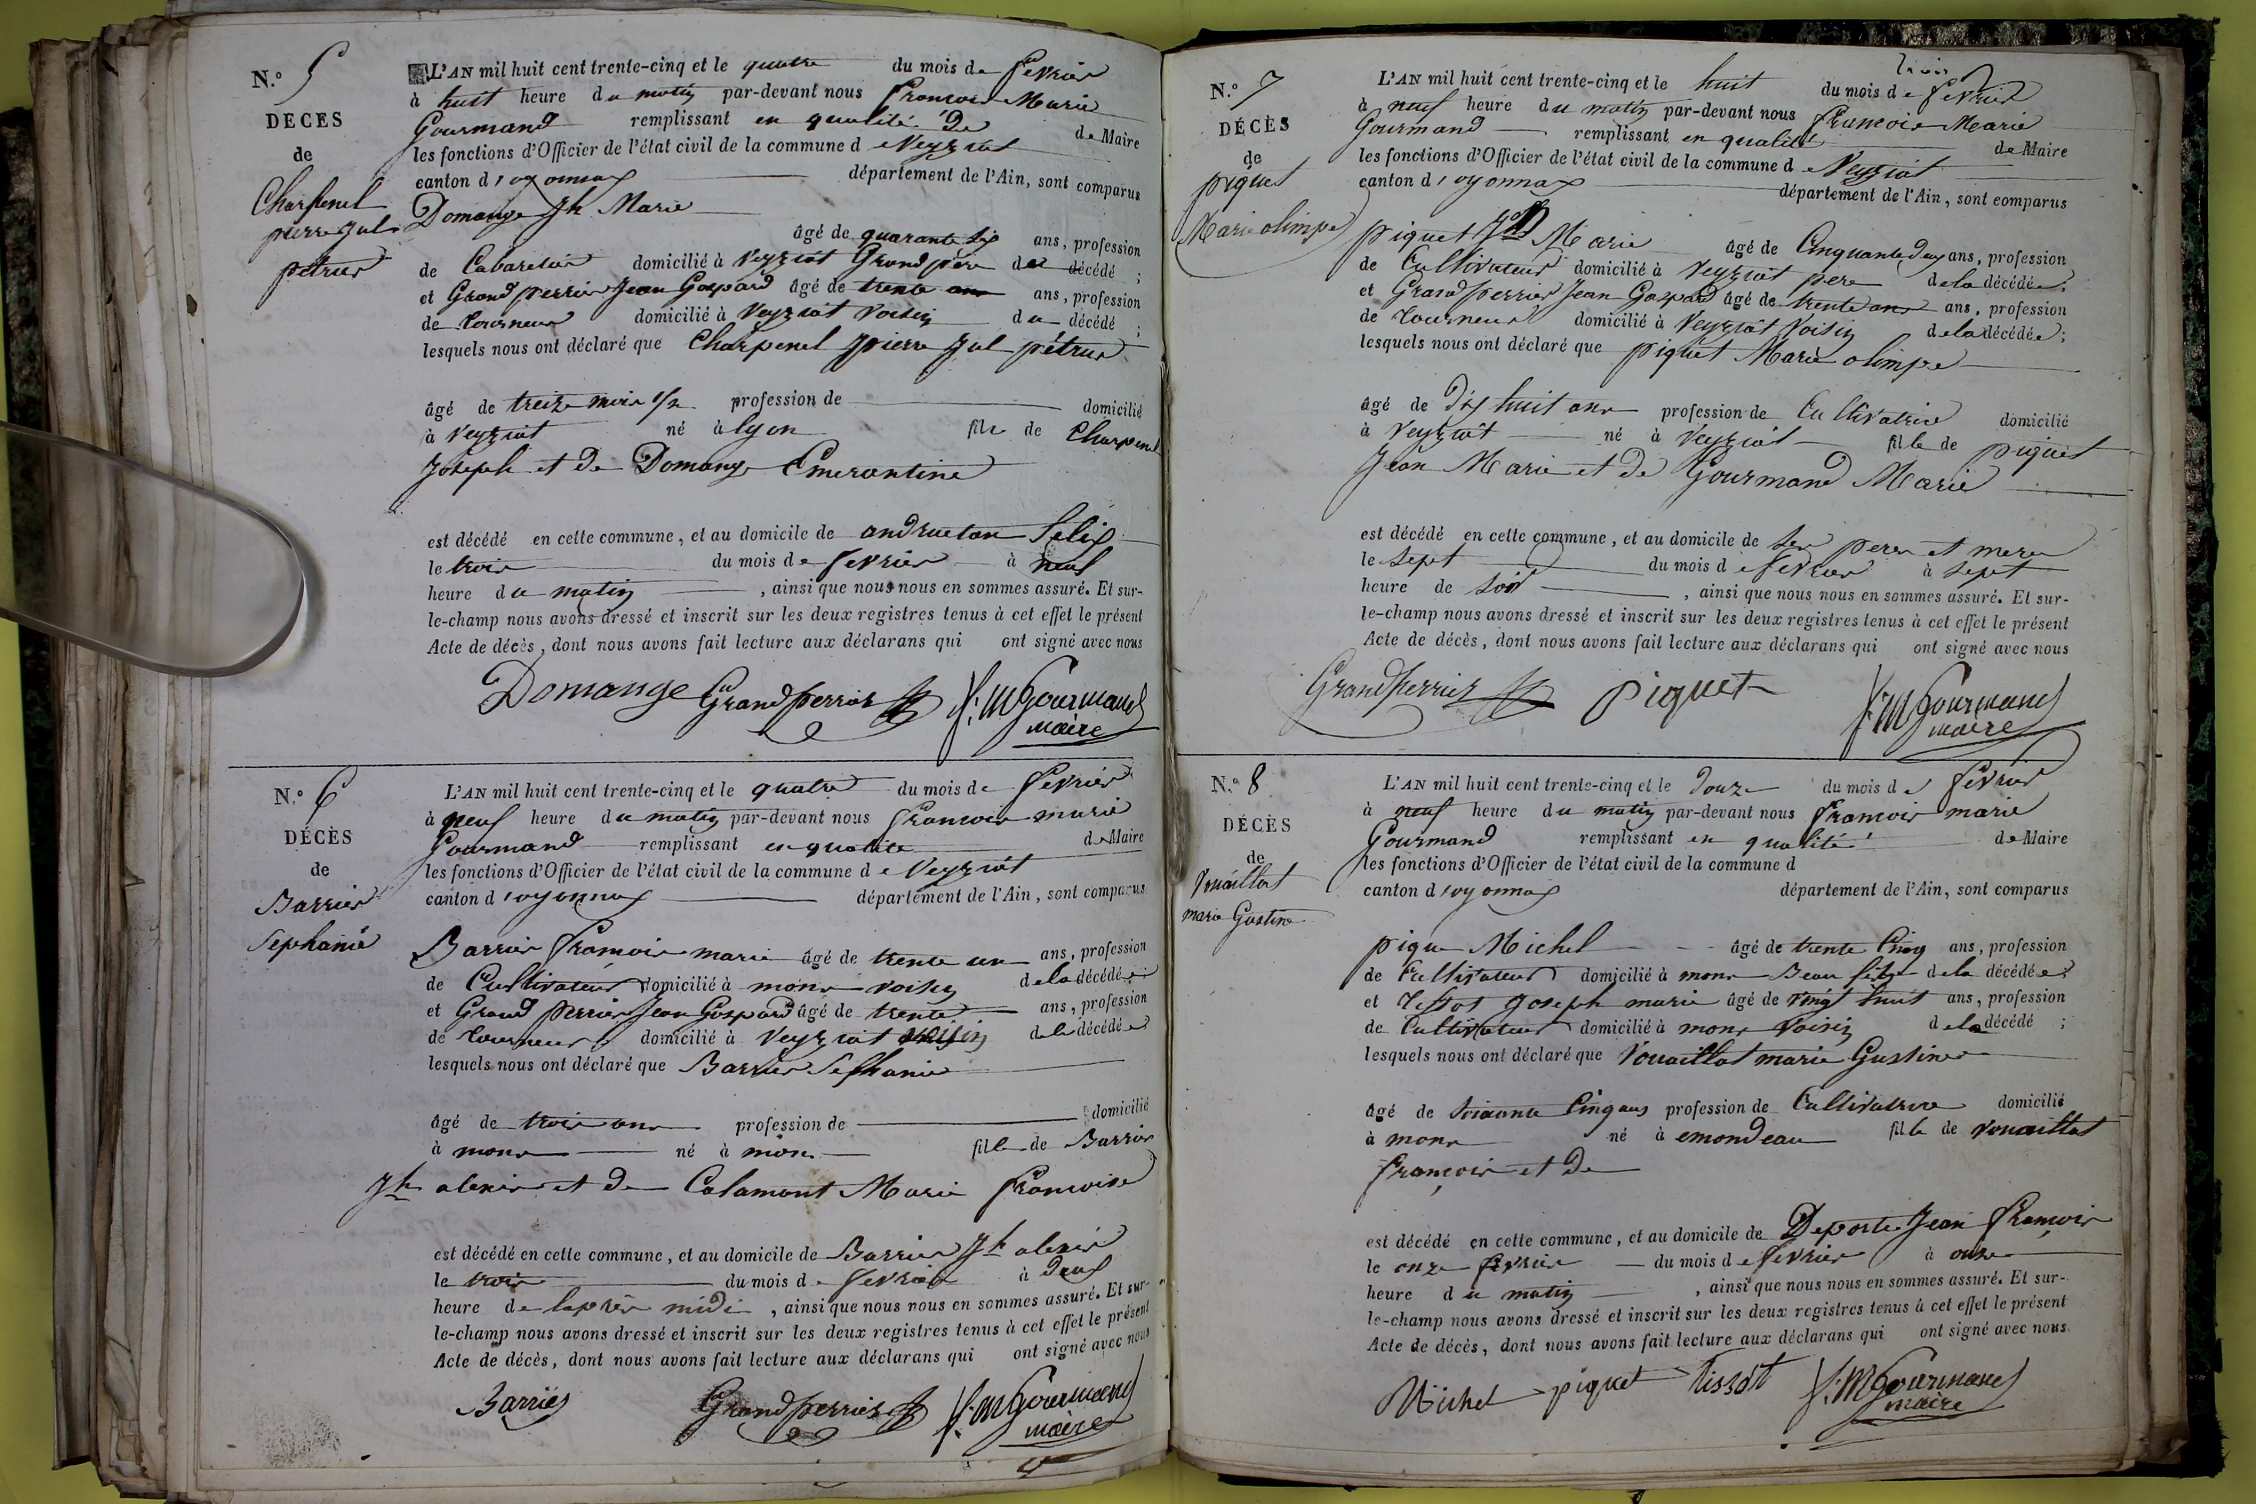 N.° 5
DÉCÈS
de
Charpenel
pierre Jul
pétrus
L'AN mil huit cent trente-cinq et le quatre du mois de fevrier
à huit heure du matin par-devant nous francois Marie
Gourmand remplissant en qualité de de Maire
les fonctions d'Officier de l'état civil de la commune d e Veyziat
canton d'oyonnax département de l'Ain, sont comparus
Domange Jh Marie
âgé de quarante six ans, profession
de Cabaretier domicilié à Veyziat Grand pere du décédé ;
et Grand perrier Jean Gaspard âgé de trente ans ans, profession
de tourneur domicilié à Veyziat Voisin du décédé ;
lesquels nous ont déclaré que Charpenel pierre Jul pétrus
âgé de treize mois 1/2 profession de domicilié
à Veyziat né à lyon fils de Charpenel
Joseph et de Domange Emerantine
est décédé en cette commune, et au domicile de andruetan felix
le trois du mois de fevrier à neuf
heure du matin , ainsi que nous nous en sommes assuré. Et sur-
le-champ nous avons dressé et inscrit sur les deux registres tenus à cet effet le présent
Acte de décès, dont nous avons fait lecture aux déclarans qui ont signé avec nous
Domange Grandperrier f. m Gourmand
maire
N.° 6
DÉCÈS
de
Barrier
Sephanie
L'AN mil huit cent trente-cinq et le quatre du mois de fevrier
à neuf heure du matin par-devant nous francois marie
Gourmand remplissant en qualité de Maire
les fonctions d'Officier de l'état civil de la commune d e Veyziat
canton d'oyonnax département de l'Ain, sont comparus
Barrier francois marie âgé de trente un ans, profession
de Cultivateur domicilié à mons voisin de la décédée ;
et Grand perrier Jean Gaspard âgé de trente ans, profession
de tourneur domicilié à Veyziat voisin de la décédée
lesquels nous ont déclaré que Barrier Sephanie
âgé de trois ans profession de domicilié
à mons né à mon fille de Barrier
Jh alexis et de Calamant Marie francoise
est décédé en cette commune, et au domicile de Barrier Jh alexis
le trois du mois de fevrier à deux
heure de laprès midi , ainsi que nous nous en sommes assuré. Et sur-
le-champ nous avons dressé et inscrit sur les deux registres tenus à cet effet le présent
Acte de décès, dont nous avons fait lecture aux déclarans qui ont signé avec nous
Barrier Grandperrier f. m Gourmand
maire
N.° 7
DÉCÈS
de
piquet
Marie olimpe
L'AN mil huit cent trente-cinq et le huit du mois de fevrier
à neuf heure du matin par-devant nous francois Marie
Gourmand remplissant en qualité de Maire
les fonctions d'Officier de l'état civil de la commune d e Veyziat
canton d'oyonnax département de l'Ain, sont comparus
piquet Marie âgé de Cinquante deux ans, profession
de Cultivateur domicilié à Veyziat pere de la décédée ;
et Grand perrier Jean Gaspard âgé de trente ans ans, profession
de tourneur domicilié à Veyziat Voisin de la décédée ;
lesquels nous ont déclaré que piquet Marie olimpe
âgé de Dix huit ans profession de Cultivatrice domicilié
à Veyziat né à Veyziat fille de piquet
Jean Marie et de Gourmand Marie
est décédé en cette commune, et au domicile de ses peres et meres
le sept du mois de fevrier à sept
heure de soir , ainsi que nous nous en sommes assuré. Et sur-
le-champ nous avons dressé et inscrit sur les deux registres tenus à cet effet le présent
Acte de décès, dont nous avons fait lecture aux déclarans qui ont signé avec nous
Grandperrier piquet f. m Gourmand
maire
N.° 8
DÉCÈS
de
Vouaillat
marie Gustine
L'AN mil huit cent trente-cinq et le douze du mois de fevrier
à neuf heure du matin par-devant nous francois marie
Gourmand remplissant en qualité de Maire
les fonctions d'Officier de l'état civil de la commune d
canton d'oyonnax département de l'Ain, sont comparus
pique Michel âgé de trente Cinq ans, profession
de Cultivateur domicilié à mons Beau fils de la décédée ;
et tissot Joseph marie âgé de vingt huit ans, profession
de Cultivateur domicilié à mons voisin de la décédé ;
lesquels nous ont déclaré que Vouaillat marie Gustine
âgé de soixante Cinq ans profession de Cultivatrice domicilié
à mons né à emondeau fille de vouaillat
françois et de
est décédé en cette commune, et au domicile de Deporte Jean françois
le onze fevrier du mois de fevrier à onze
heure du matin , ainsi que nous nous en sommes assuré. Et sur-
le-champ nous avons dressé et inscrit sur les deux registres tenus à cet effet le présent
Acte de décès, dont nous avons fait lecture aux déclarans qui ont signé avec nous
Michel piquet tissot f. m Gourmand
maire